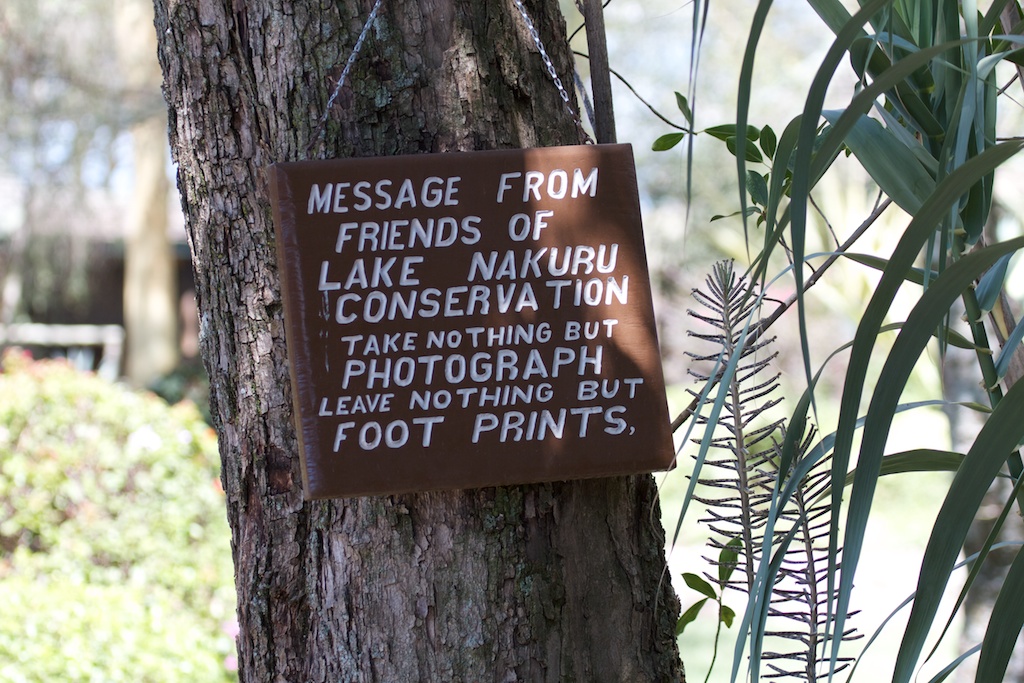 MESSAGE FROM
FRIENDS OF
LAKE NAKURU
CONSERVATION
TAKE NOTHING BUT
PHOTOGRAPH
LEAVE NOTHING BUT
FOOT PRINTS,